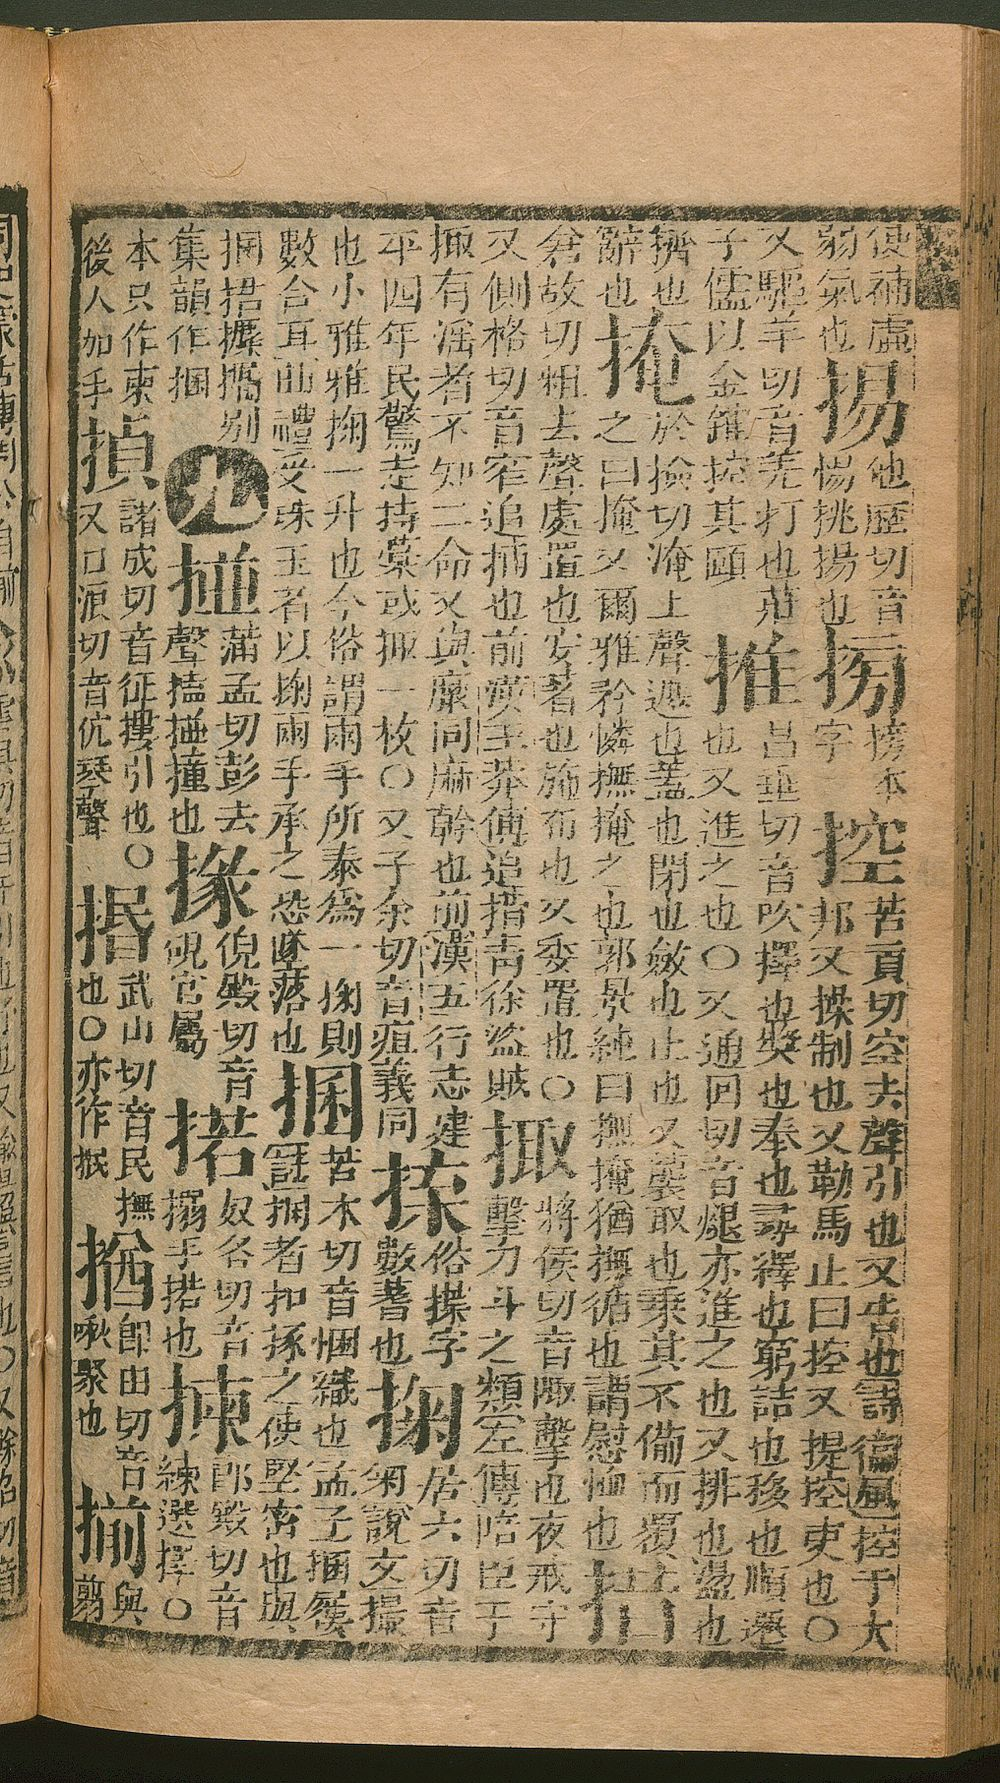 使補虛弱氣也掦他歴切音惕挑掦也㧾榜本字控苦貢切空去聲引也又告也詩鄘風控于大邦又操制也又勒馬止曰控又提控吏也〇
又驅羊切音羌打也莊子儒以金錐控其頤推昌垂切音吹擇也獎也奉也尋繹也窮詰也移也順遷也又進之也〇又通回切音煺亦進之也又排也盪也
擠也辭也掩於撿切淹上聲遮也蓋也閉也斂也止也又襲取也乘其不備而覆之曰掩又爾雅矜憐撫掩之也郭景純曰撫掩猶撫循也謂慰恤也措
倉故切粗去聲處置也安著也施布也又委置也〇又側格切音窄追捕也前漢王莽傅追措靑徐盜賊掫將侯切音陬擊也夜戒守擊刀斗之類左傳陪臣于
掫有滛者不知二命又與黀同麻幹也前漢五行志建平四年民驚走持藁或掫一枚〇又子余切音疽義同揲俗揲字數蓍也掬居六切音匊說文撮
也小雅雅掬一升也今俗謂兩手所奉爲一掬則數合耳曲禮受珠玉者以掬兩手承之恐墜落也捆苦本切音悃織也孟子捆屨註捆者扣㧻之使堅密也與
捆捃攈攟別集韻作捆九掽蒲孟切彭去聲搕掽撞也掾倪殿切音硯官屬掿奴各切音搦手掿也揀郎殿切音練選擇〇
本只作柬後人加手揁諸成切音征摟引也〇又口浪切音伉琴聲捪武巾切音民撫也〇亦作抿揂即由切音啾聚也揃與剪